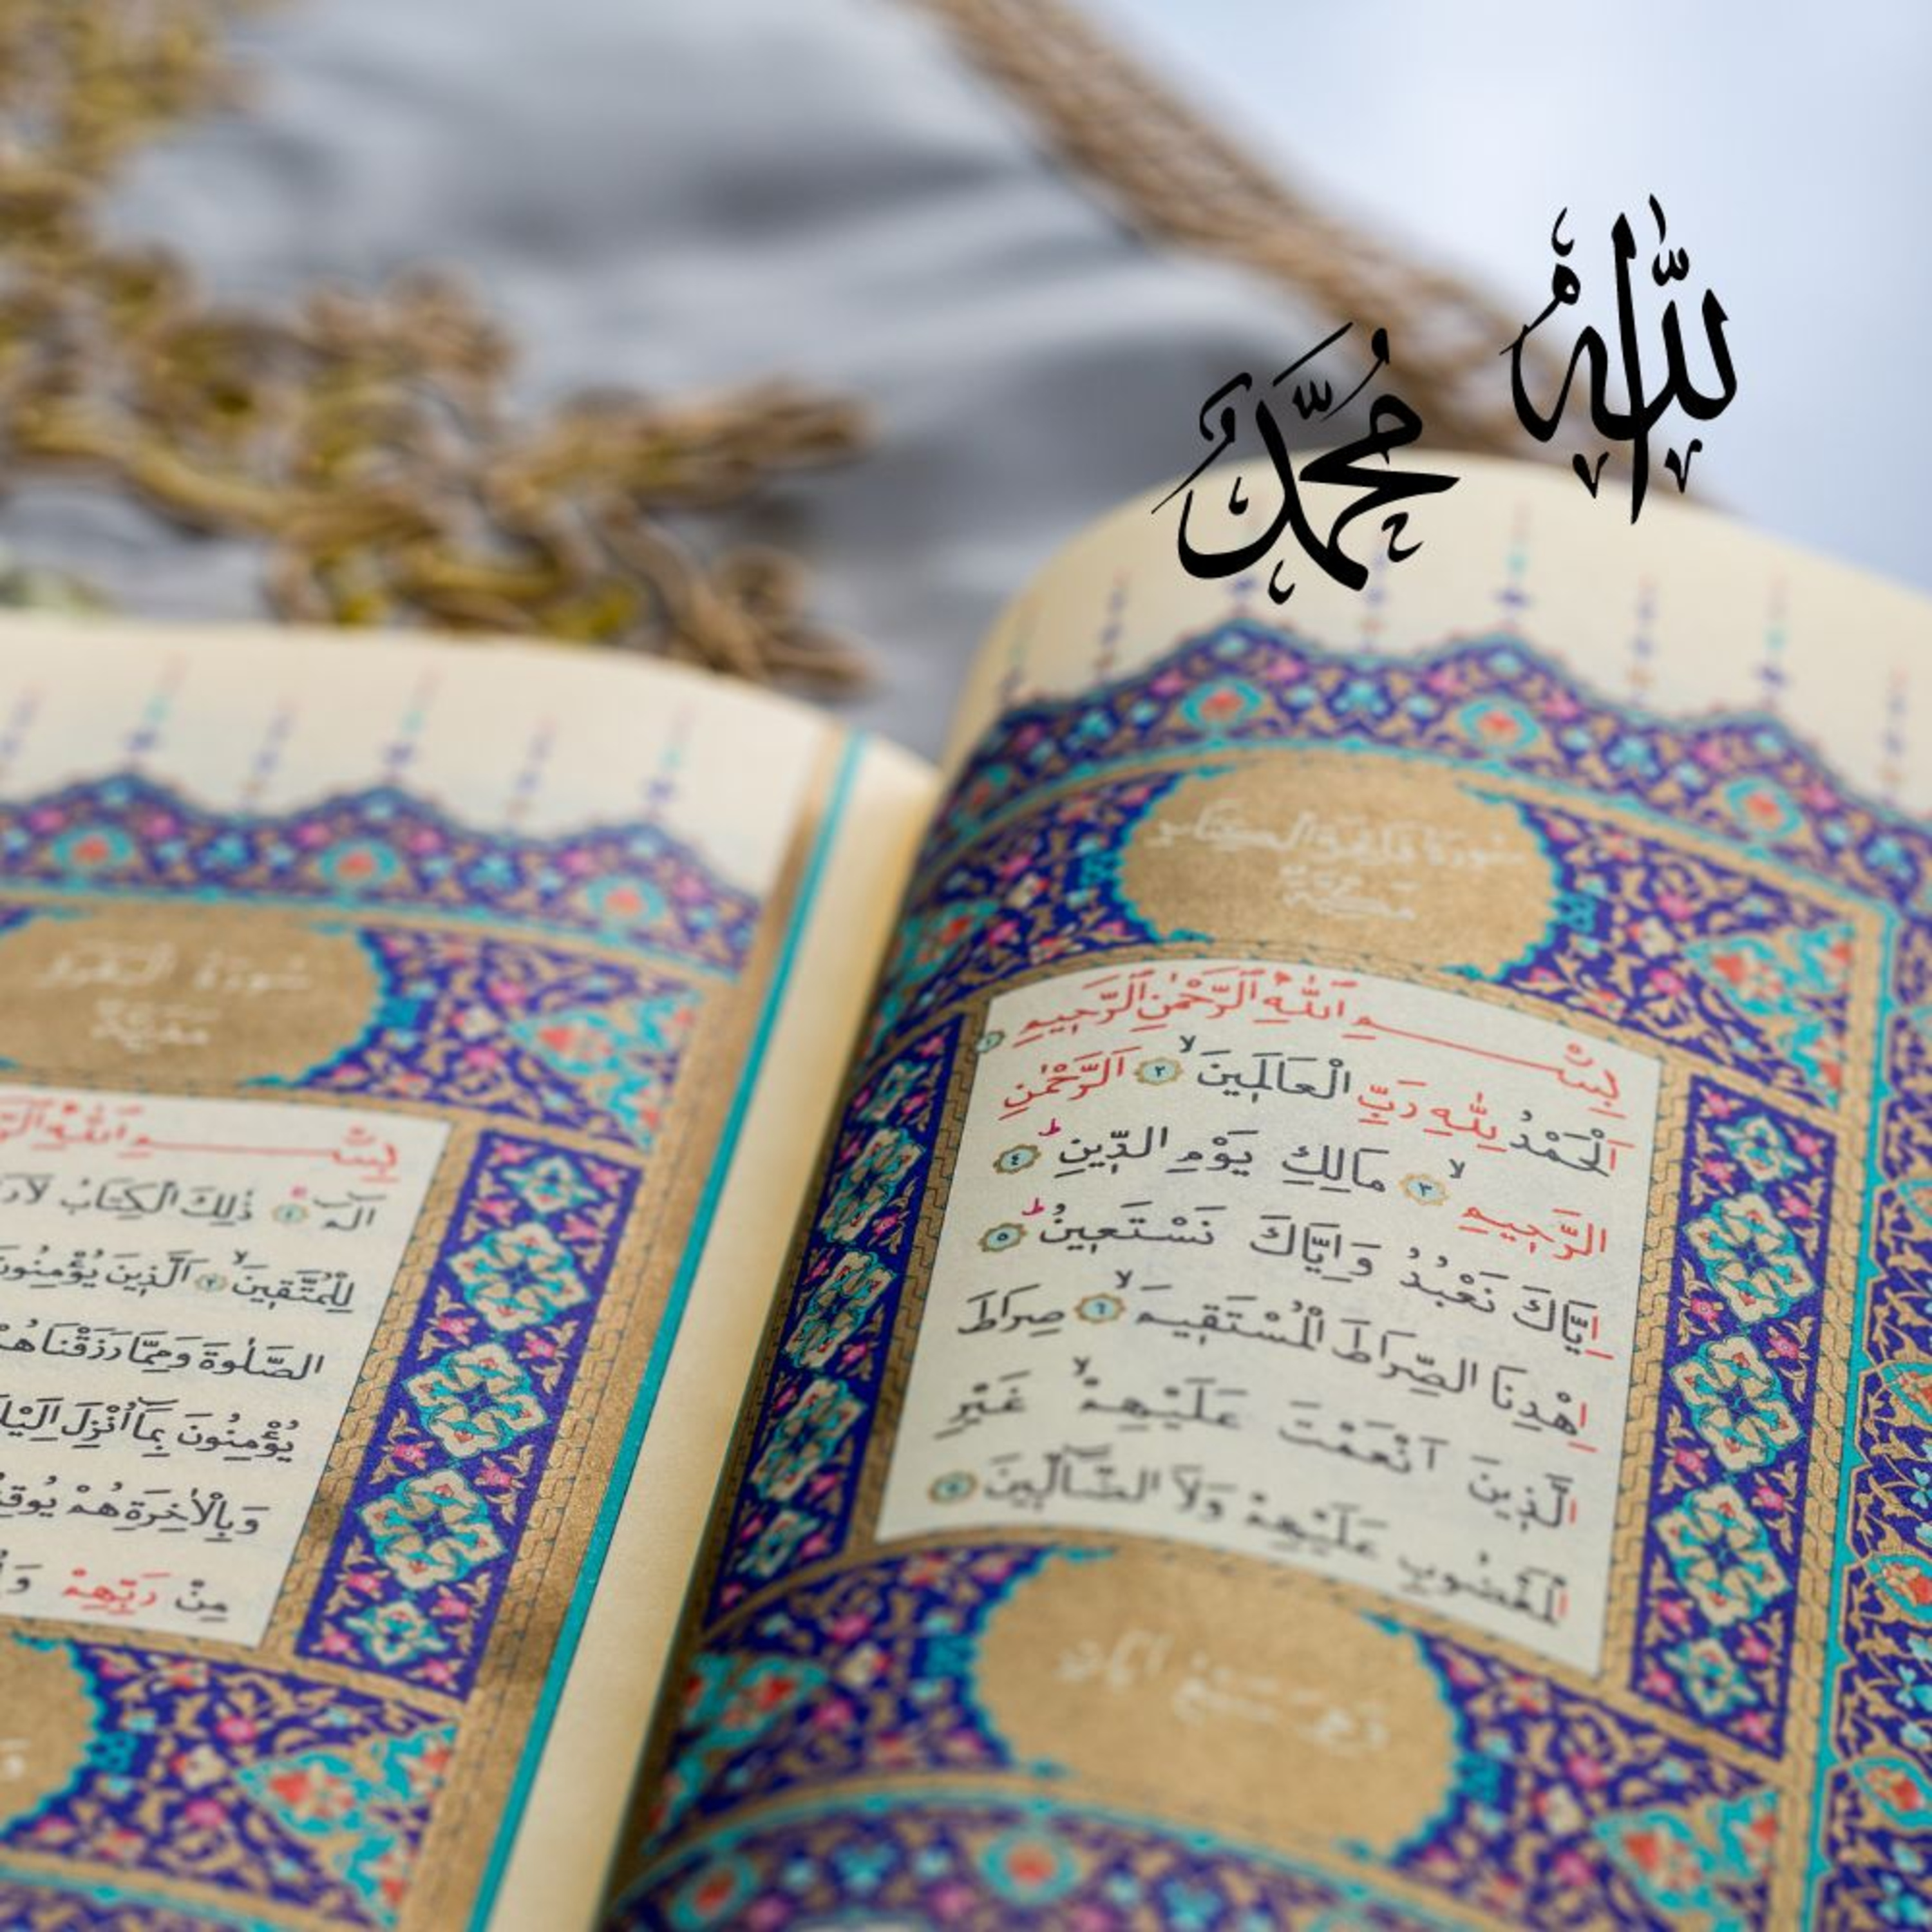 الله
مُحَمَّدٌ
سُورَةُ فَاتِحَةِ الْكِتَابِ
مَكِّيَّةٌ
بِسْــــمِ اللّٰهِ الرَّحْمٰنِ الرَّحٖيمِ ١
اَلْحَمْدُ لِلّٰهِ رَبِّ الْعَالَمٖينَۙ ٢ اَلرَّحْمٰنِ
الرَّحٖيمِۙ ٣ مَالِكِ يَوْمِ الدّٖينِۜ ٤
اِيَّاكَ نَعْبُدُ وَاِيَّاكَ نَسْتَعٖينُۜ ٥
اِهْدِنَا الصِّرَاطَ الْمُسْتَقٖيمَۙ ٦ صِرَاطَ
الَّذٖينَ اَنْعَمْتَ عَلَيْهِمْۙ غَيْرِ
الْمَغْضُوبِ عَلَيْهِمْ وَلَا الضَّٓالّٖينَ ٧
سُورَةُ الْبَقَرَةِ
مَدَنِيَّةٌ
بِسْــــمِ اللّٰهِ
الٓمٓۚ ١ ذٰلِكَ الْكِتَابُ لَا
لِلْمُتَّقٖينَۙ ٢ اَلَّذٖينَ يُؤْمِنُونَ
الصَّلٰوةَ وَمِمَّا رَزَقْنَاهُمْ
يُؤْمِنُونَ بِمَٓا اُنْزِلَ
وَبِالْاٰخِرَةِ هُمْ
مِنْ رَبِّهِمْ